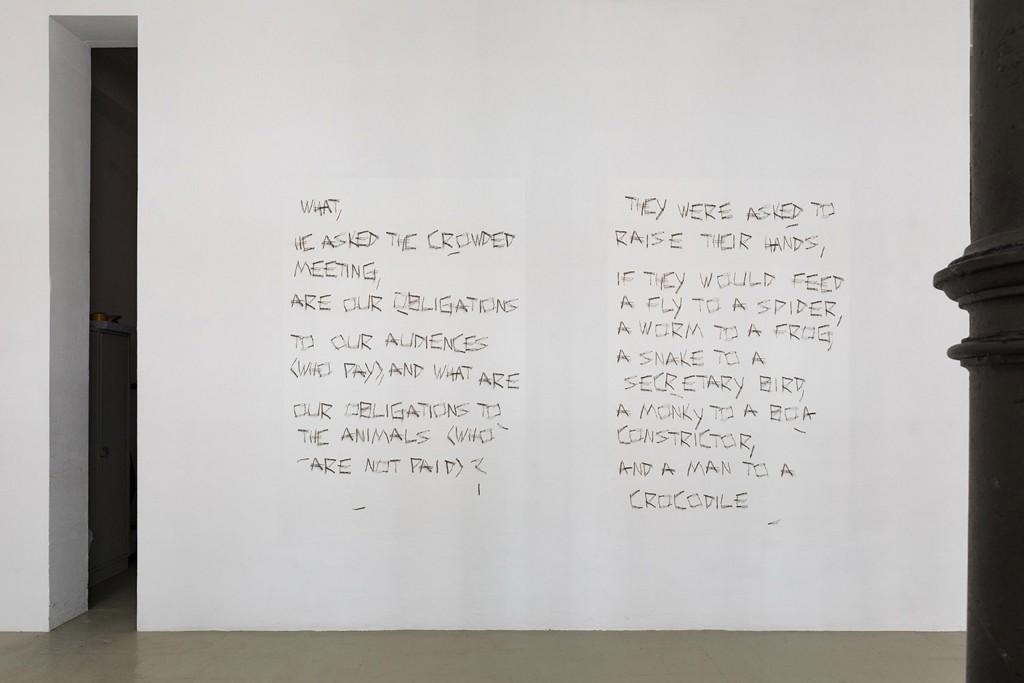 WHAT,
HE ASKED THE CROWDED
MEETING,
ARE OUR OBLIGATIONS
TO OUR AUDIENCES
(WHO PAY), AND WHAT ARE
OUR OBLIGATIONS TO
THE ANIMALS (WHO
ARE NOT PAID)?
THEY WERE ASKED TO
RAISE THEIR HANDS,
IF THEY WOULD FEED
A FLY TO A SPIDER,
A WORM TO A FROG,
A SNAKE TO A
SECRETARY BIRD,
A MONKY TO A BOA
CONSTRICTOR,
AND A MAN TO A
CROCODILE